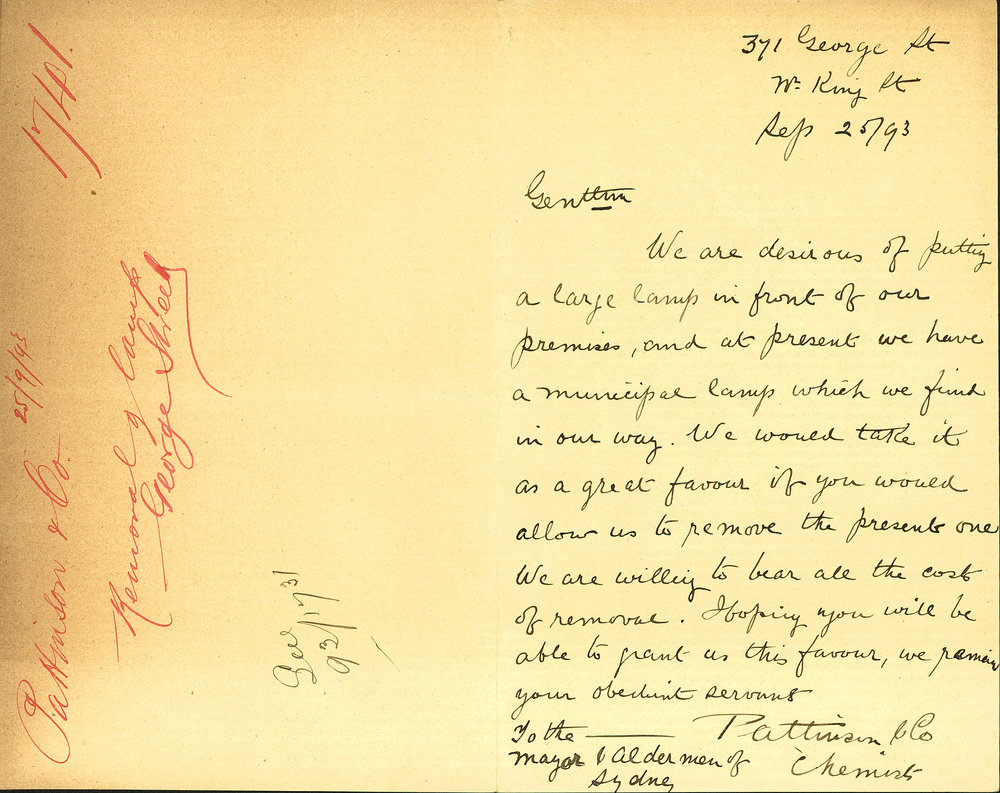 1741.
Pattinson & Co. 25/9/93
Removal of lamp
George Street
See
93/1731
371 George St
Nr King St
Sep 25/93
Gentlmn
We are desirous of putting
a large lamp in front of our
premises, and at present we have
a municipal lamp which we find
in our way. We would take it
as a great favour if you would
allow us to remove the present one
We are willing to bear all the cost
of removal. Hoping you will be
able to grant us this favour, we remain
your obedient servants
To the Pattinson & Co
Mayor & Aldermen of Chemists
Sydney